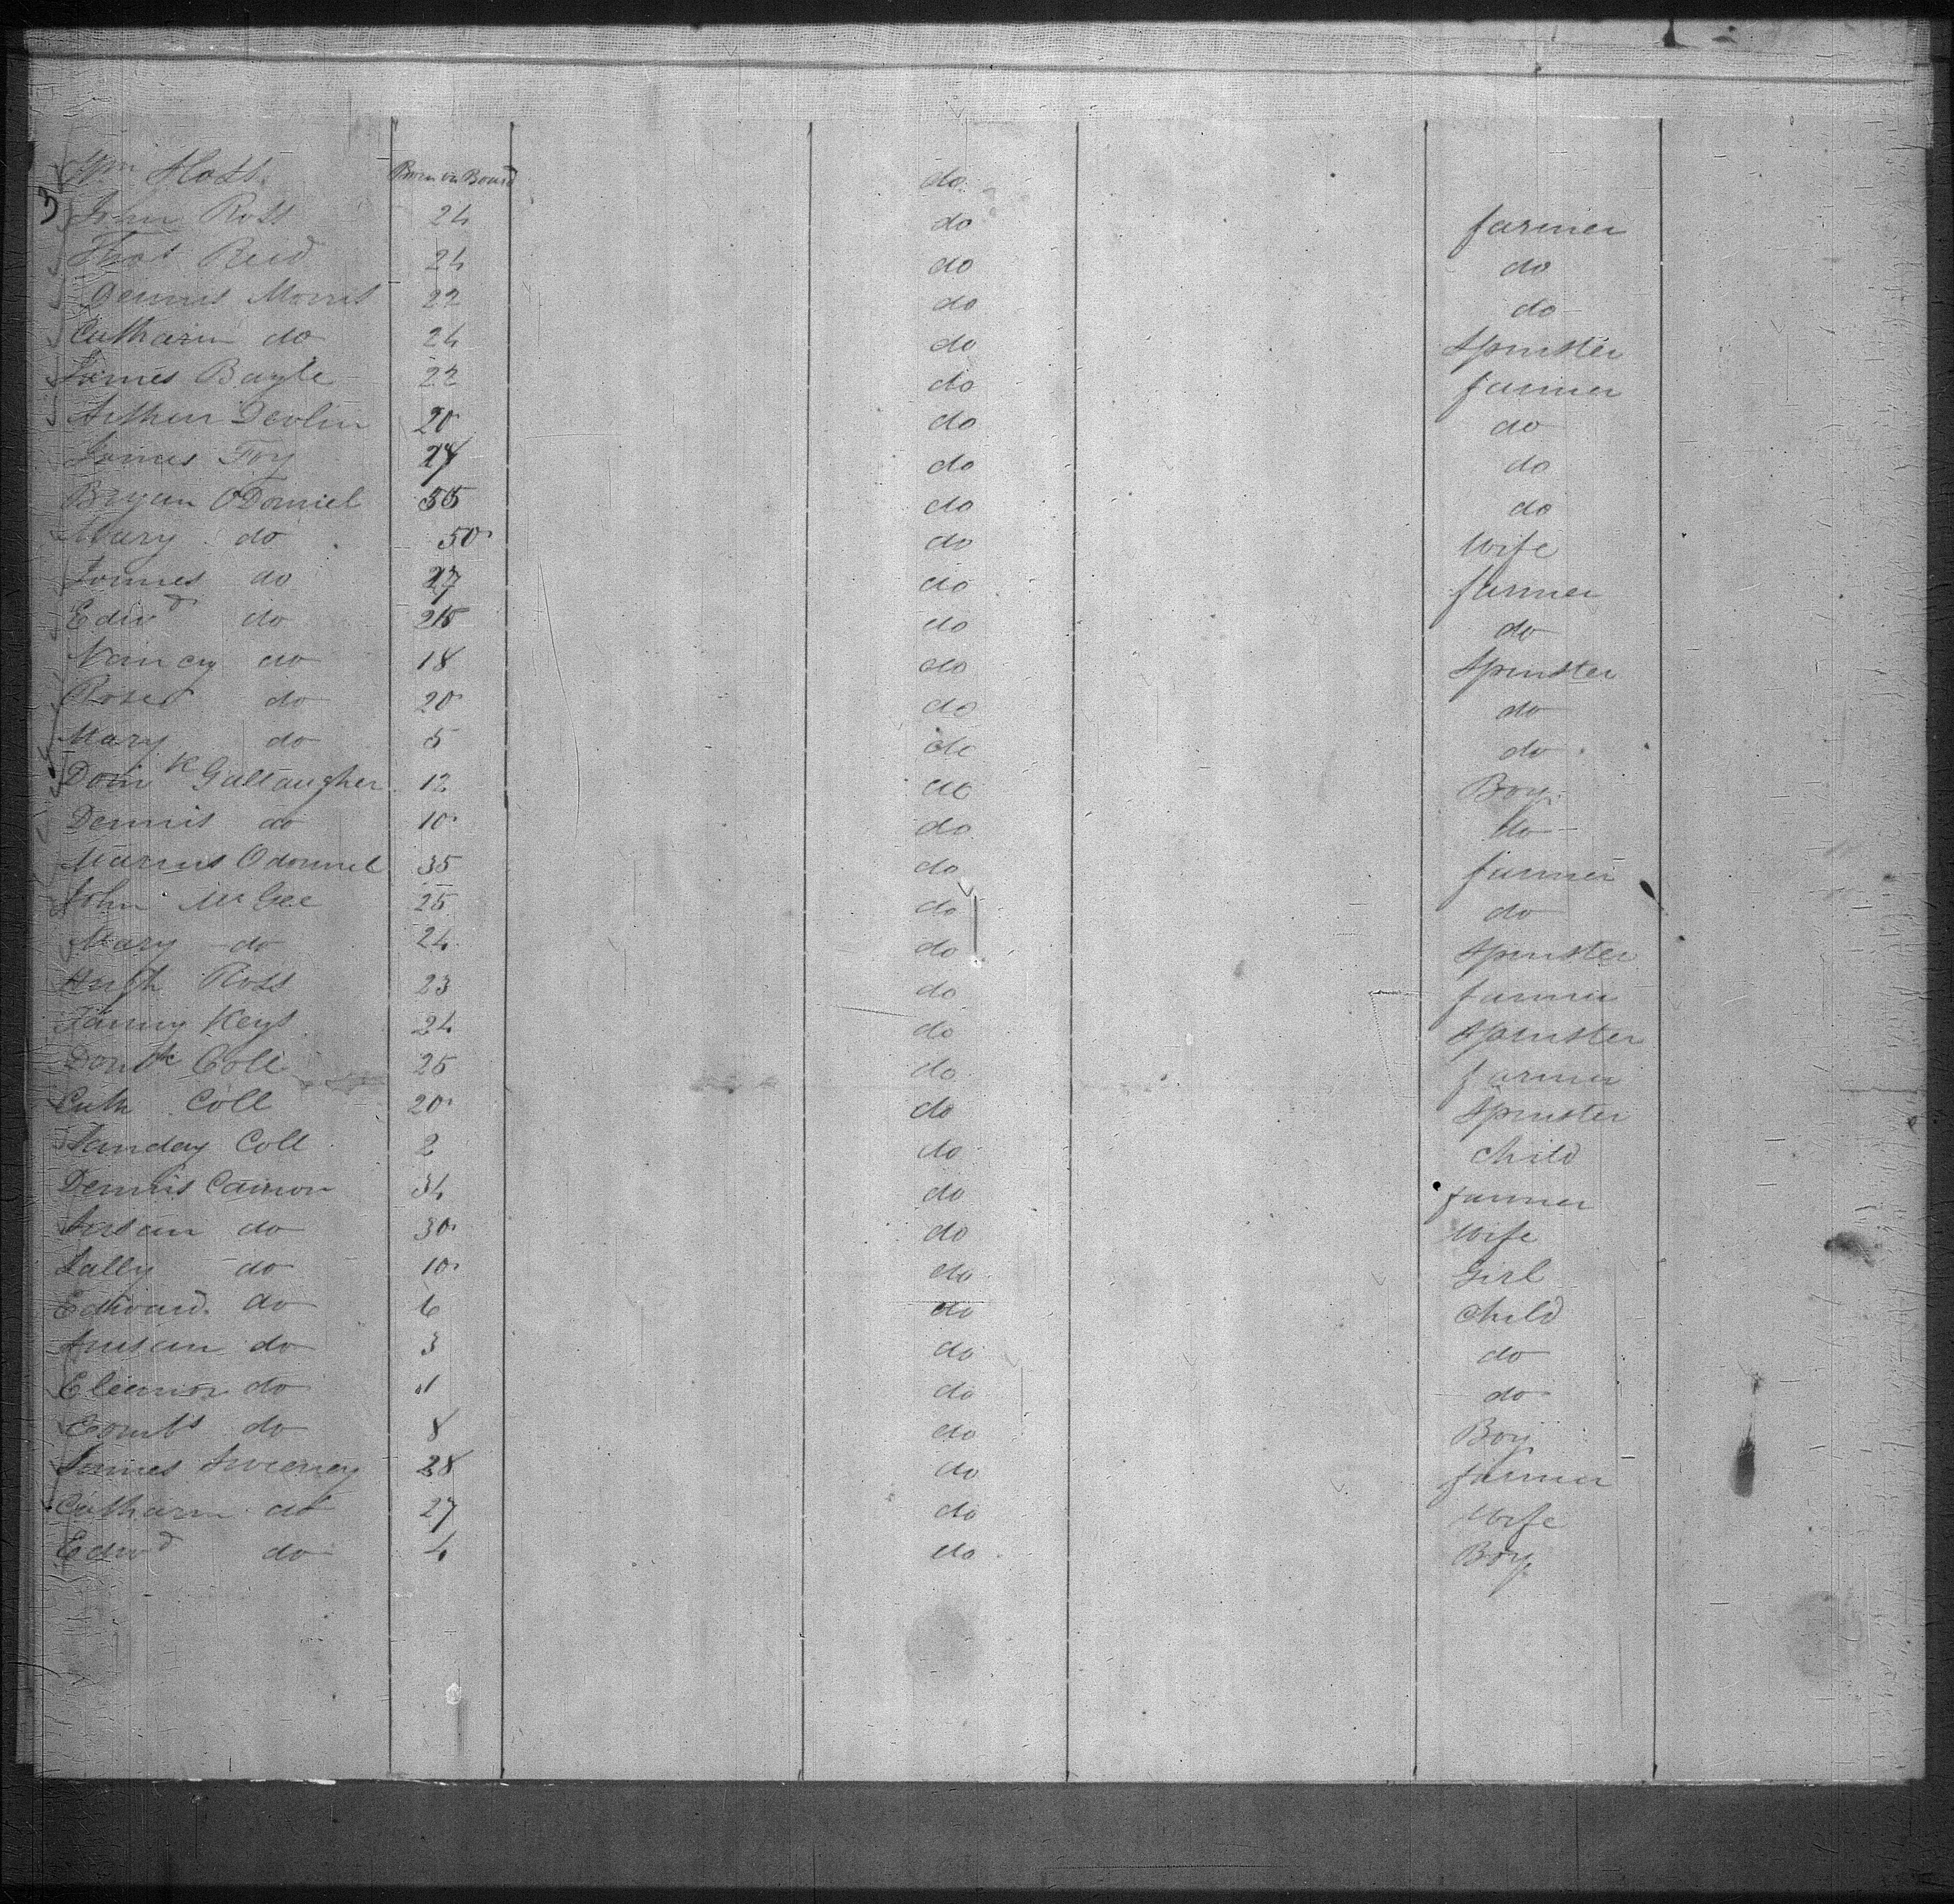 Wm Hoss Born on Board do
John Ross 24 do farmer
Thos Reid 24 do do
Dennis Morris 22 do do
Catharin do 24 do Spinster
James Bayle 22 do farmer
Arthur Devlin 20 do do
James Foy 27 do do
Bryan ODonniel 55 do do
Mary do 50 do Wife
James do 27 do farmer
Edwd do 25 do do
Nancy do 18 do Spinster
Rose do 20 do do
Mary do 5 do do
Domk Gallaugher 12 do Boy
Dennis do 10 do do
Manus Odonnel 35 do farmer
John McGee 25 do do
Mary do 24 do Spinster
Hugh Ross 23 do farmer
Fanny Keys 24 do Spinster
Domk Coll 25 do farmer
Cath Coll 20 do Spinster
Coll 2 do Child
Dennis Cannon 34 do farmer
Susan do 30 do Wife
Sally do 10 do Girl
Edward do 6 do Child
Susan do 3 do do
Eleanor do 1 do do
do 8 do Boy
James Sweeney 28 do farmer
Catharin do 27 do Wife
Edwd do 4 do Boy